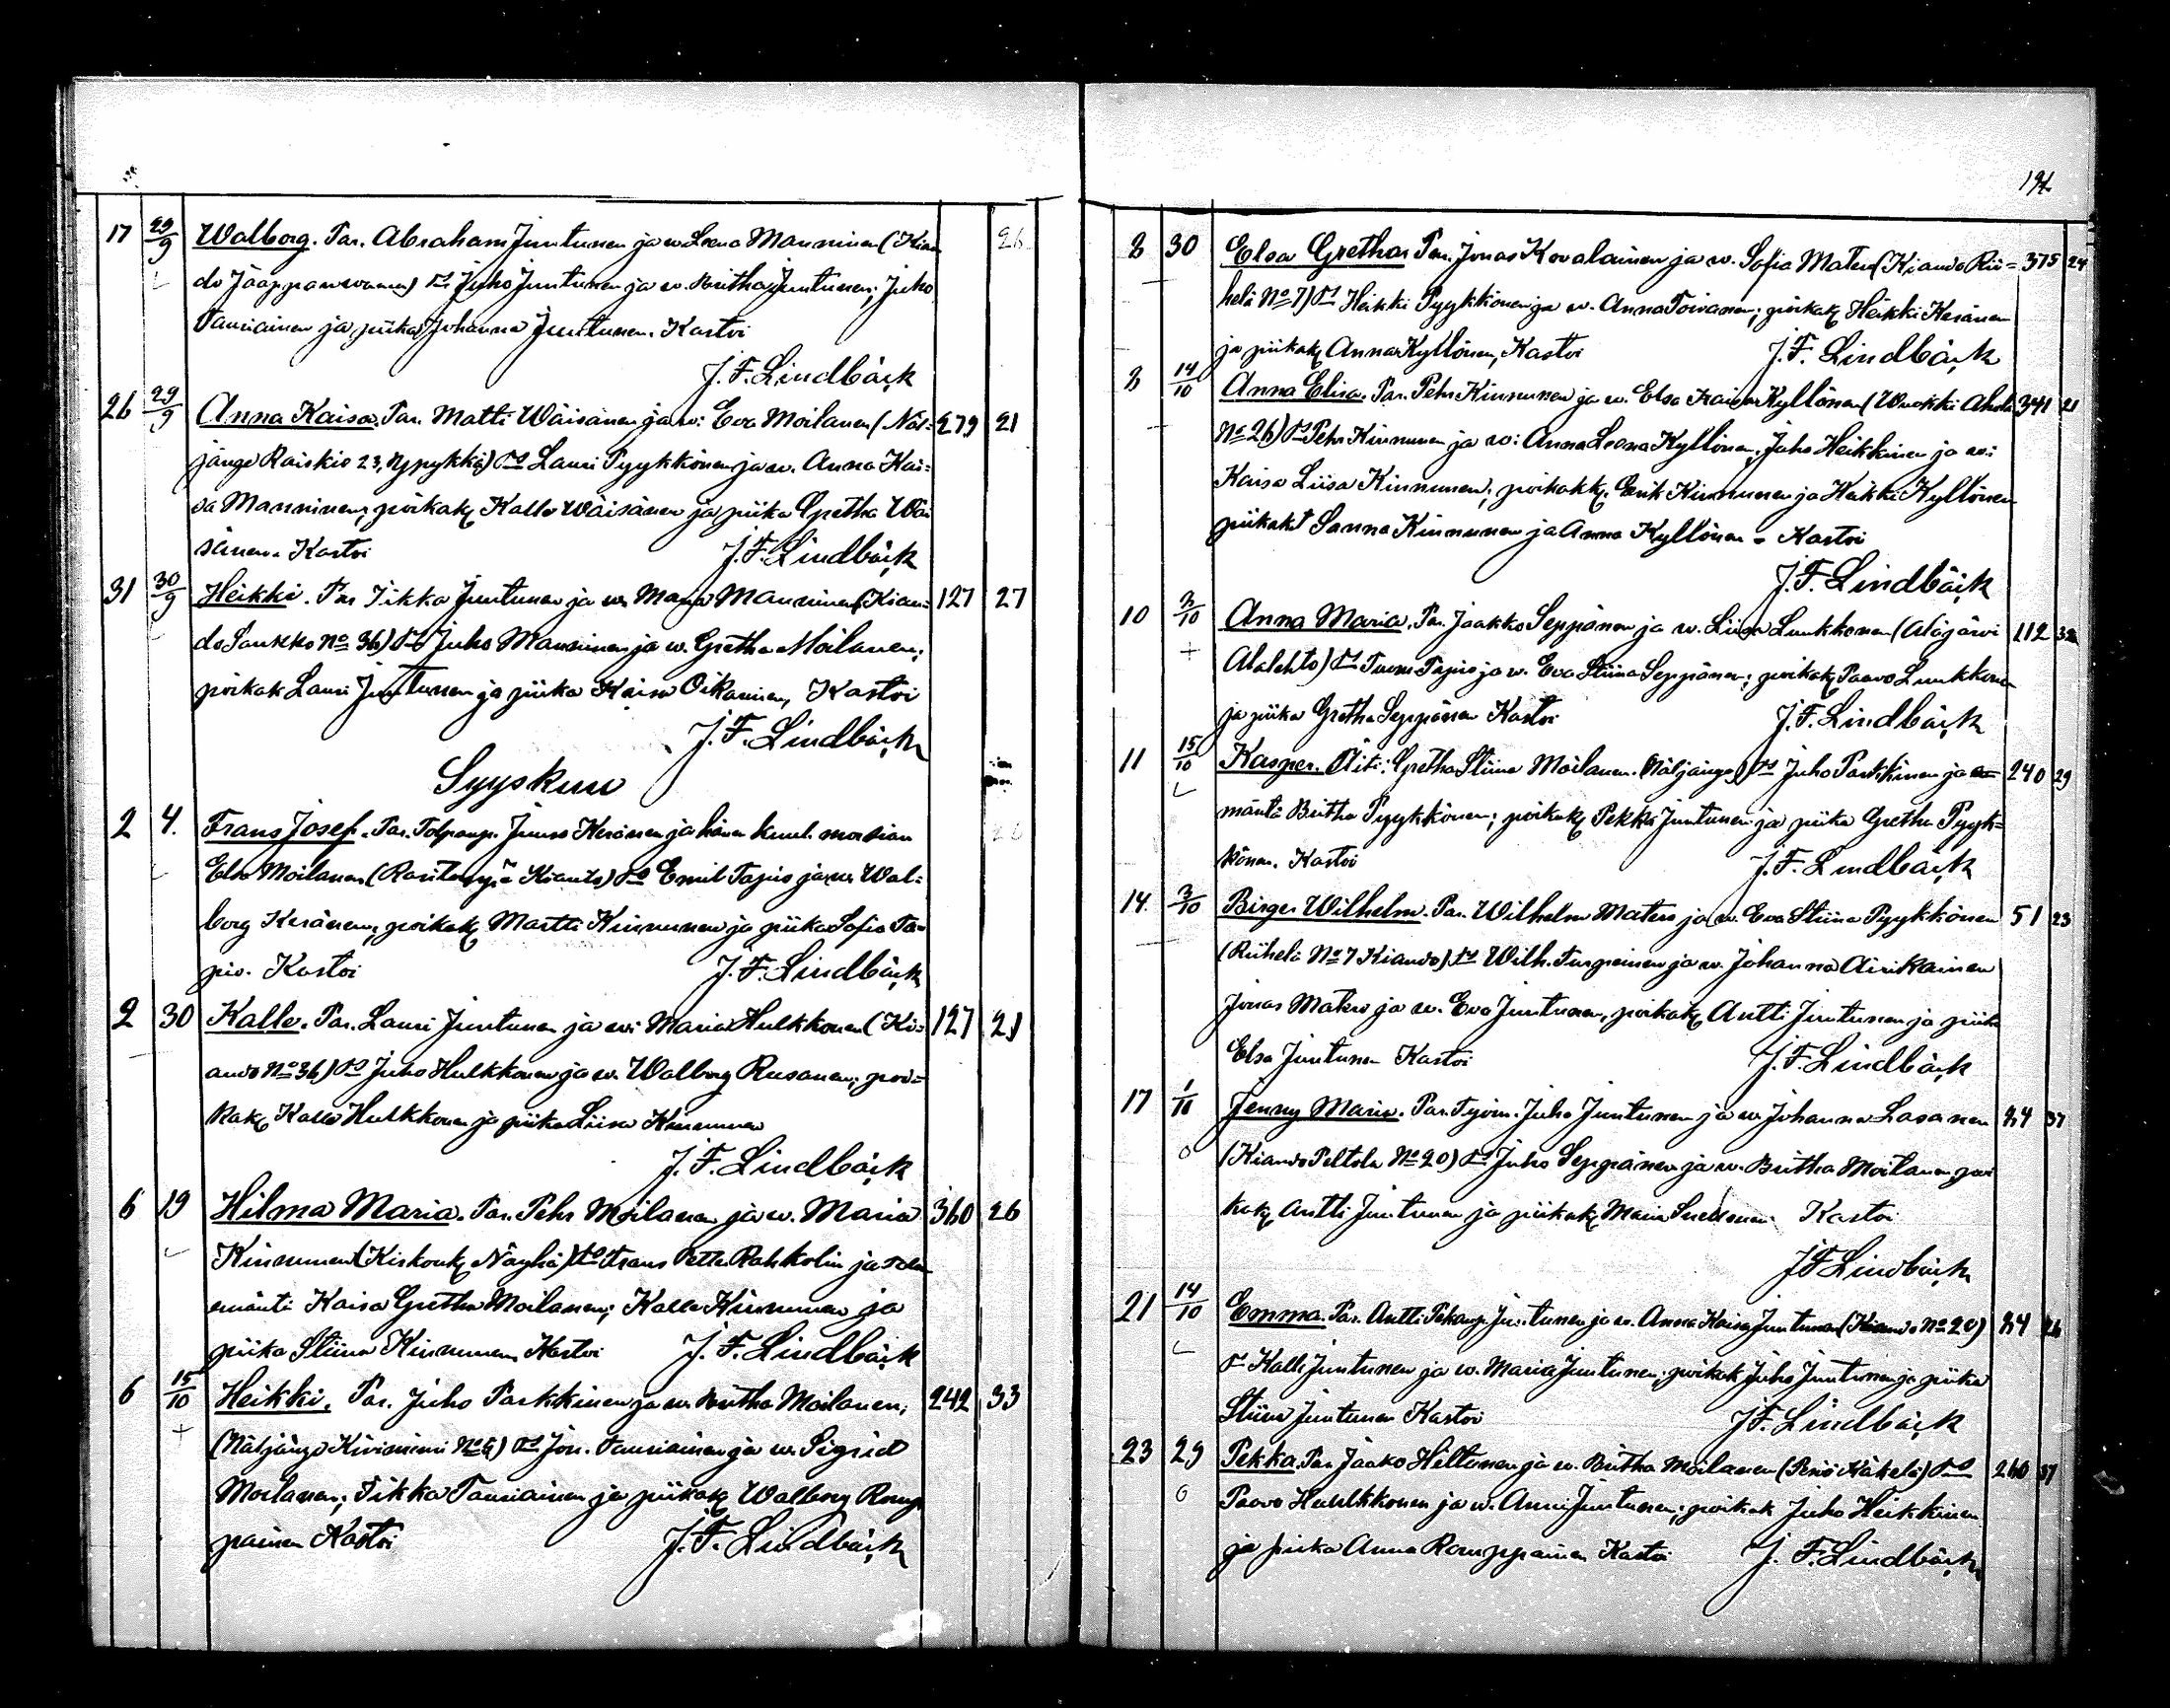 17 29/9 Walborg. Par. Abraham Juntunen ja w. Leena Manninen (Kian 26
do Jaapparwaara) Juho Juntunen ja w. Britha Juntunen; Juho
Tauriainen ja piika Johanna Juntunen. Kastoi
J. F. Lindbäck
26 29/9 Anna Kaisa. Par. Matti Wäisänen ja w: Eva Moilanen (Näl= 279 21
jängö Raiskio 23, Lauri Pyykkönen ja w. Anna Kai=
sa Manninen; poikak Kalle Wäisänen ja piika Gretha Wäi
sänen. Kastoi J. F. Lindbäck
31 30/9 Heikki. Par Iikka Juntunen ja w. Maria Manninen (Kian= 127 27
do Saukko No 36) Juho Manninen ja w. Gretha Moilanen;
poikak Lauri Juntunen ja piika Kaisa Oikarinen, Kastoi
J. F. Lindbäck
Syyskuu
2 4. Frans Josef. Par. Juuso Keränen ja hänen kuol. morsian
Elsa Moilanen (Kianto) Emil Tapio ja w. Wal=
borg Keränen; poikak Martti Kinnunen ja piika Sofia Ta=
pio. Kastoi J. F. Lindbäck
2 30 Kalle. Par. Lauri Juntunen ja w: Maria Hulkkonen (Ki= 127 21
ando No 36) Juho Hulkkonen ja w. Walborg Rusanen; poi=
kak Kalle Hulkkonen ja piika Liisa Kinnunen
J. F. Lindbäck
6 19 Hilma Maria. Par. Pehr Moilanen ja w. Maria 360 26
Kinnunen (Kirkonk Näyhä) Frans Petter Rahkolin ja
emäntä Kaisa Gretha Moilanen; Kalle Kinnunen ja
piika Stiina Kinnunen Kastoi J. F. Lindbäck
6 15/10 Heikki. Par. Juho Parkkinen ja w. Britha Moilanen; 242 33
(Näljängö Kiviniemi No 6) Jon. Tauriainen ja w. Sigrid
Moilanen; Iikka Tauriainen ja piikak Walborg Romp
painen Kastoi J. F. Lindbäck
194
8 30 Elsa Gretha. Par. Jonas Kovalainen ja w. Sofia Matero (Kiando Rii= 375 24
helä No 7) Heikki Pyykkönen ja w. Anna Toivanen; poikak Heikki Keränen
ja piikak Anna Kyllönen, Kastoi J. F. Lindbäck
8 14/10 Anna Elisa. Par. Pehr Kinnunen ja w. Elsa Kaisa Kyllönen (Wuokki Ahola 341 21
No 26) Pehr Kinnunen ja w: Anna Leena Kyllönen, Juho Heikkinen ja w:
Kaisa Liisa Kinnunen; poikakk. Erik Kinnunen ja Heikki Kyllönen
piikakt Sanna Kinnunen ja Anna Kyllönen - Kastoi
J. F. Lindbäck
10 3/10 Anna Maria. Par. Jaakko Seppänen ja w. Liisa Luukkonen (Alajärvi 112 32
Alalehto) Tuomi Tapio ja w. Eva Stiina Seppänen; poikak Paavo Luukkonen
ja piika Gretha Seppänen Kastoi J. F. Lindbäck
11 15/10 Kasper. Äiti: Gretha Stiina Moilanen. (Näljängö) Juho Parkkinen ja e= 240 29
mäntä Britha Pyykkönen; poikak Pekka Juntunen ja piika Gretha Pyyk=
könen. Kastoi J. F. Lindbäck
14. 3/10 Birger Wilhelm. Par. Wilhelm Matero ja w. Eva Stiina Pyykkönen 51 23
(Riihelä No 7 Kiando) Wilh. Turpeinen ja w. Johanna Airikainen
Jonas Matero ja w. Eva Juntunen, poikak Antti Juntunen ja piika
Elsa Juntunen Kastoi J. F. Lindbäck
17 1/10 Jenny Maria. Par. Työm. Juho Juntunen ja w Johanna Lasanen 84 37
(Kiando Peltola No 20) Juho Seppänen ja w. Britha Moilanen, poi
kak Antti Juntunen ja piikak Maria Kastoi
J F Lindbäck
21 14/10 Emma. Par. Antti Juntunen ja w. Anna Kaisa Juntunen (Kiando No 20) 84 26
Kalle Juntunen ja w. Maria Juntunen; poikak Juho Juntunen ja piika
Stiina Juntunen Kastoi J F. Lindbäck
23 29 Pekka. Par Jaako Heltunen ja w. Britha Moilanen (Pesiö Käkelä) 260 37
Paavo Huhlkkonen ja w. Anni Juntunen; poikak Juho Heikkinen
ja piika Anna Romppainen Kastoi J. F. Lindbäck